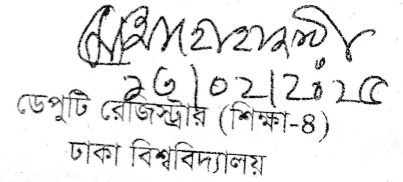 ২৩/০২/২০২৫
ডেপুটি রেজিস্ট্রার (শিক্ষা-৪)
ঢাকা বিশ্ববিদ্যালয়